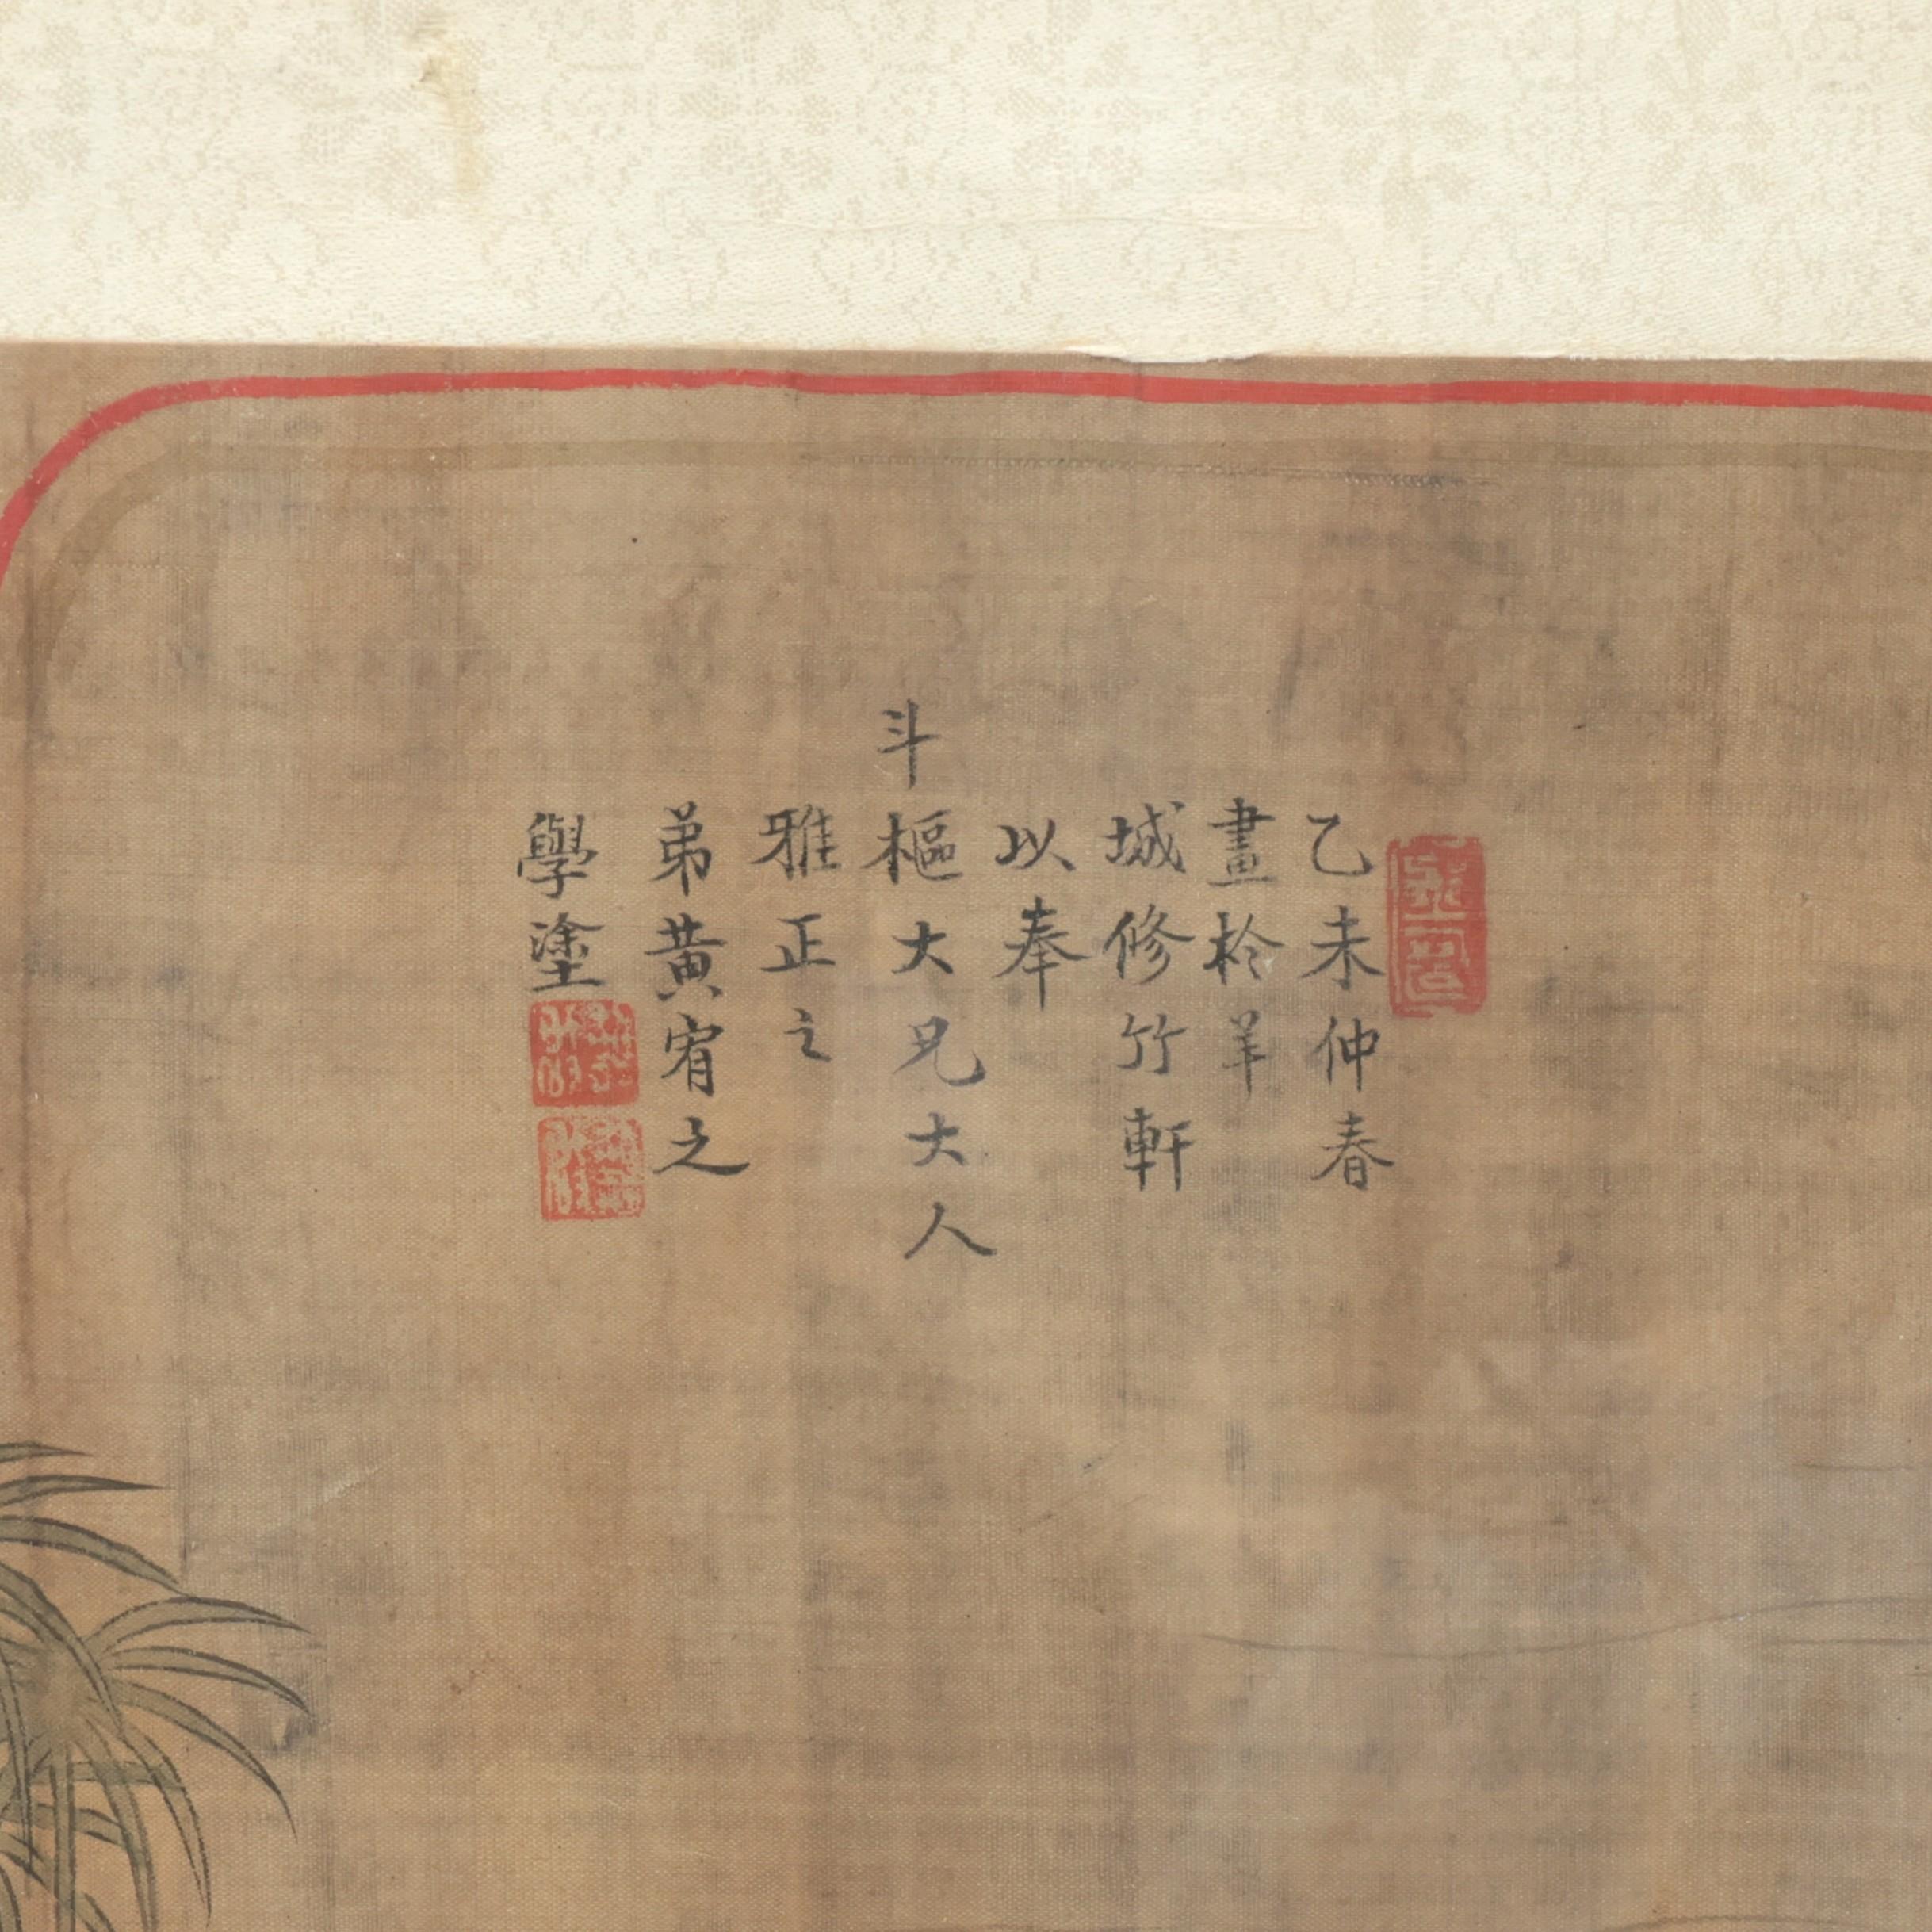 乙未仲春
畫於羊
城修竹軒
以奉
斗樞大兄大人
雅正之
弟黃宥之
學塗